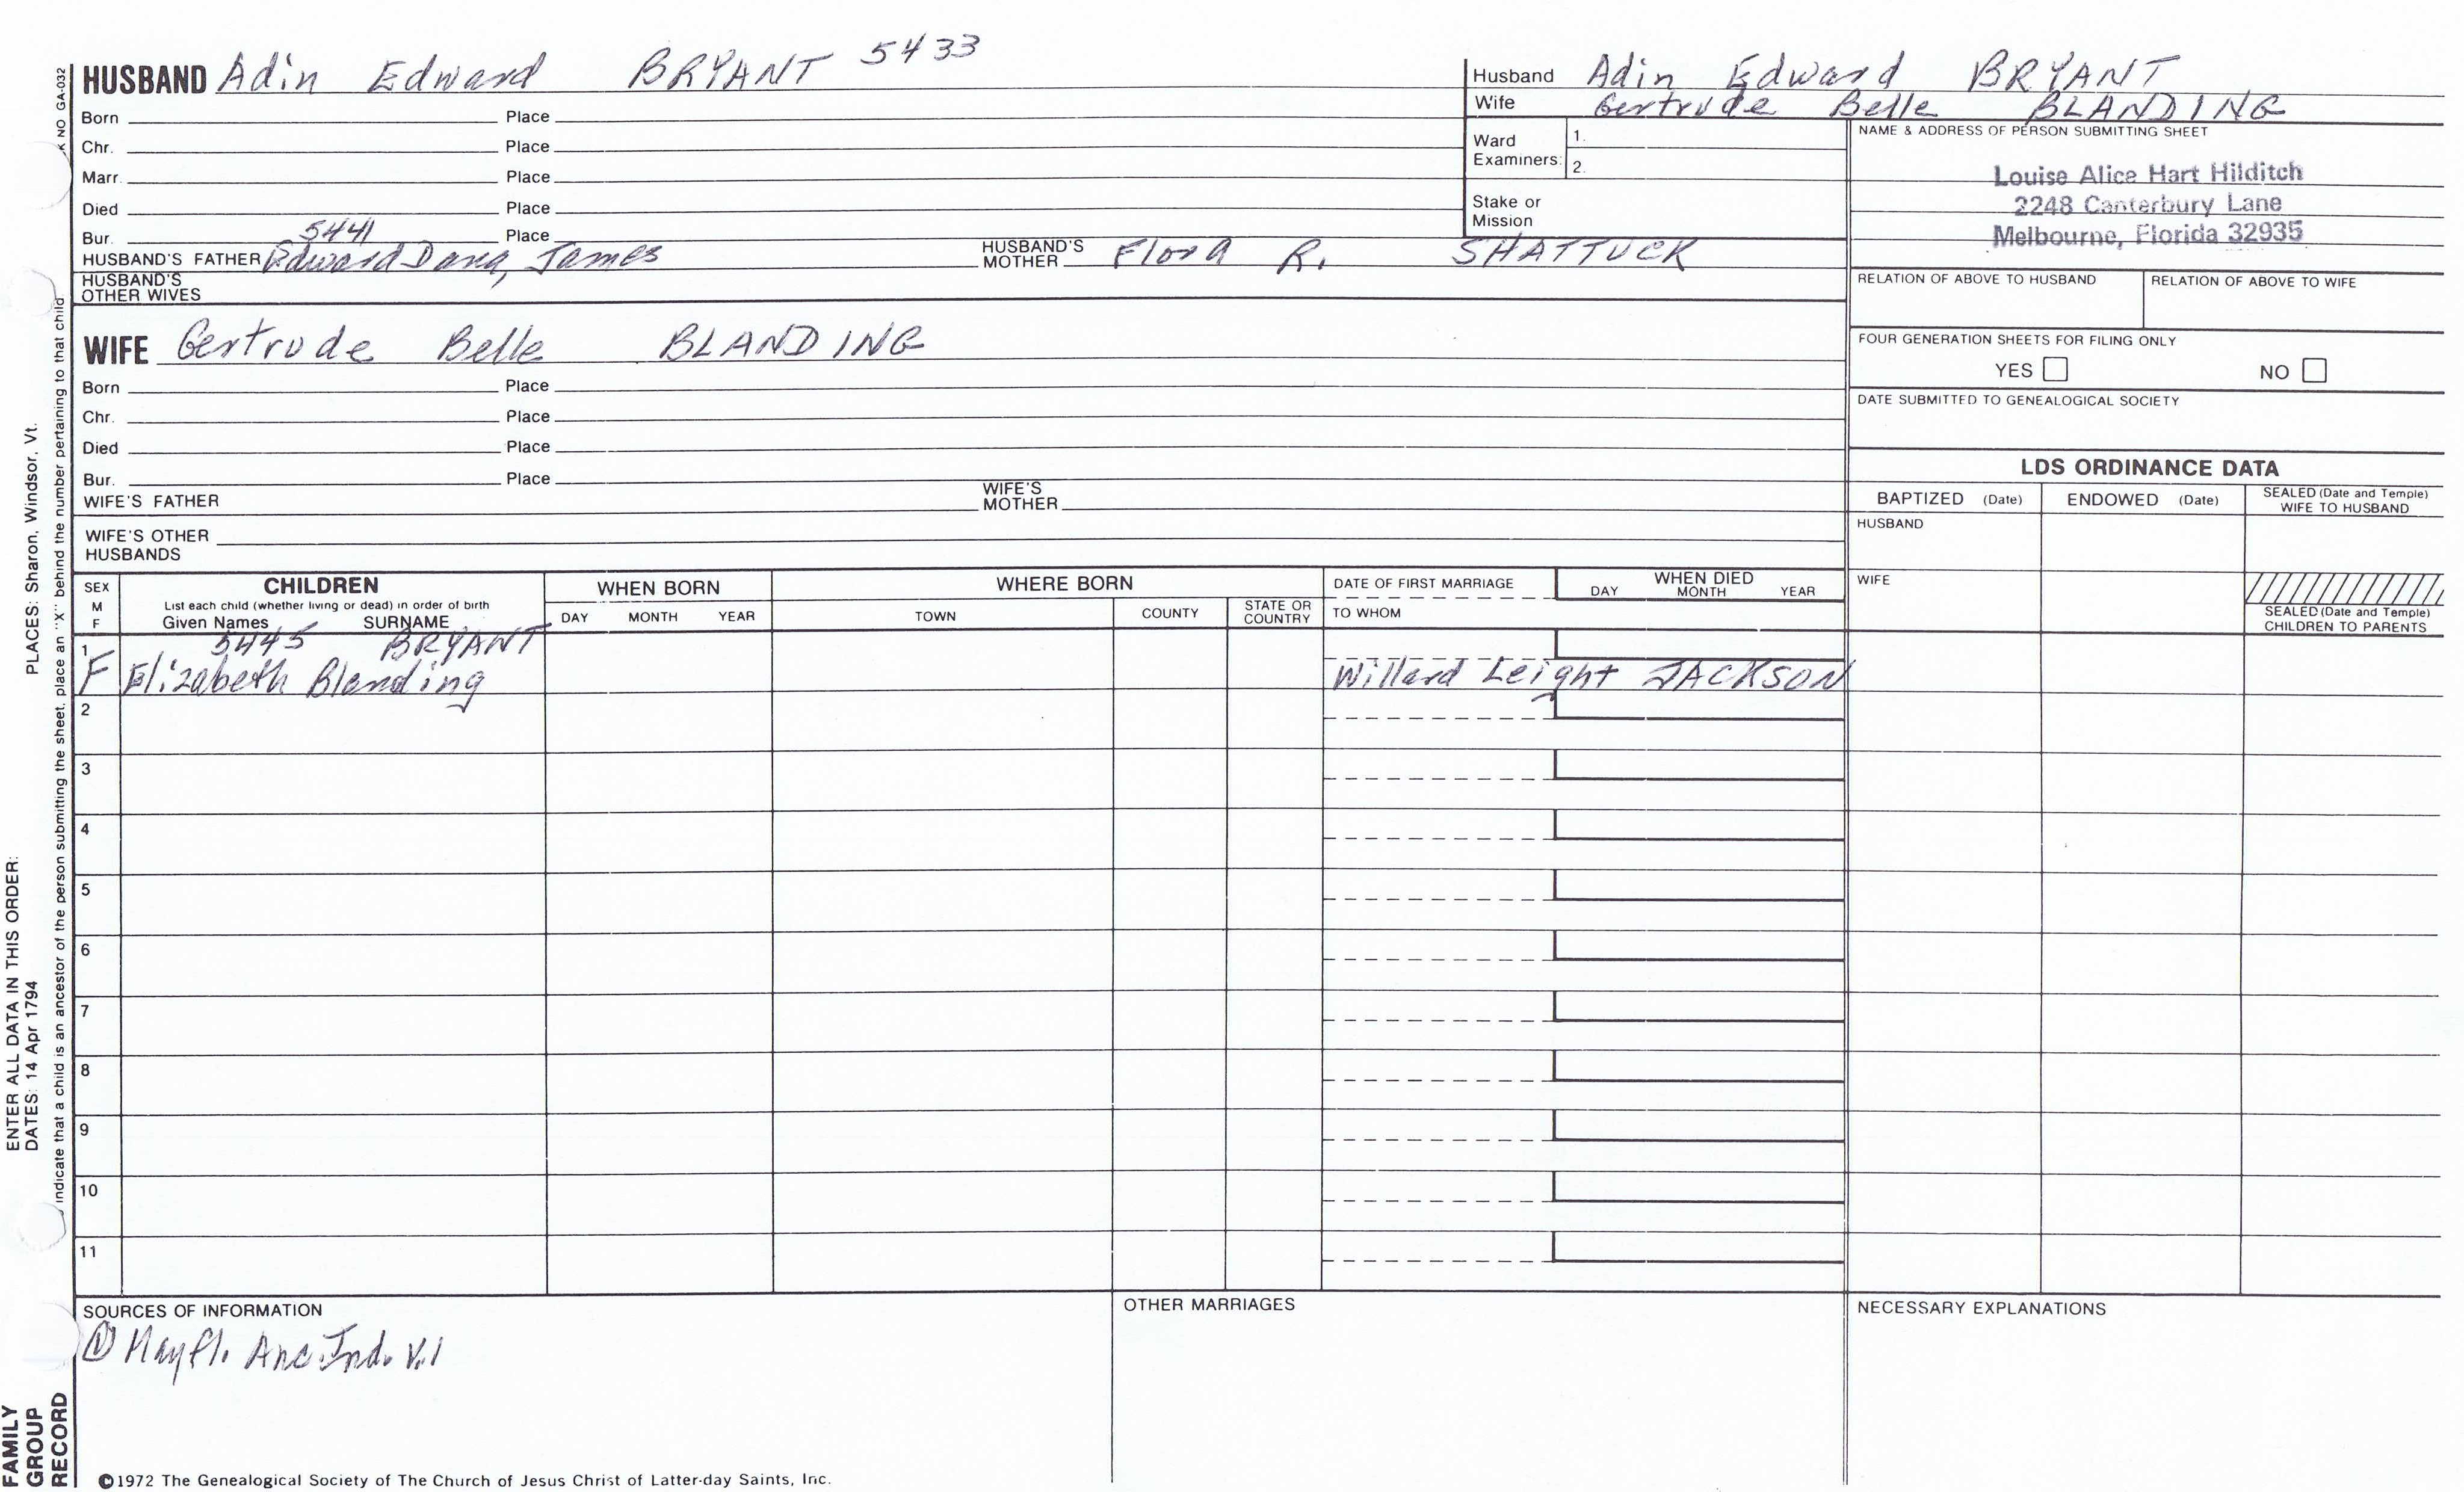 HUSBAND Adin Edward BRYANT 5433
Born Place
Chr. Place
Marr. Place
Died Place
Bur. Place
5441
HUSBAND'S FATHER Edward Dana, James HUSBAND'S MOTHER Flora R. SHATTUCK
HUSBAND'S OTHER WIVES
WIFE Gertrude Belle BLANDING
Born Place
Chr. Place
Died Place
Bur. Place
WIFE'S FATHER WIFE'S MOTHER
WIFE'S OTHER HUSBANDS
Husband Adin Edward BRYANT
Wife Gertrude Belle BLANDING
Ward Examiners: 1.
2.
Stake or Mission
NAME & ADDRESS OF PERSON SUBMITTING SHEET
Louise Alice Hart Hilditch
2248 Canterbury Lane
Melbourne, Florida 32935
RELATION OF ABOVE TO HUSBAND RELATION OF ABOVE TO WIFE
FOUR GENERATION SHEETS FOR FILING ONLY
YES NO
DATE SUBMITTED TO GENEALOGICAL SOCIETY
LDS ORDINANCE DATA
BAPTIZED (Date) ENDOWED (Date) SEALED (Date and Temple) WIFE TO HUSBAND
HUSBAND
WIFE
SEALED (Date and Temple) CHILDREN TO PARENTS
SEX M F
CHILDREN
List each child (whether living or dead) in order of birth
Given Names SURNAME
WHEN BORN
DAY MONTH YEAR
WHERE BORN
TOWN COUNTY STATE OR COUNTRY
DATE OF FIRST MARRIAGE
TO WHOM
WHEN DIED
DAY MONTH YEAR
1 5445 BRYANT
F Elizabeth Blanding Willard Leight JACKSON
2
3
4
5
6
7
8
9
10
11
SOURCES OF INFORMATION
① Mayfl. Anc. Ind. V.1
OTHER MARRIAGES
NECESSARY EXPLANATIONS
©1972 The Genealogical Society of The Church of Jesus Christ of Latter-day Saints, Inc.
FAMILY GROUP RECORD
ENTER ALL DATA IN THIS ORDER:
DATES: 14 Apr 1794 PLACES: Sharon, Windsor, Vt.
indicate that a child is an ancestor of the person submitting the sheet, place an "X" behind the number pertaining to that child
NO GA-032